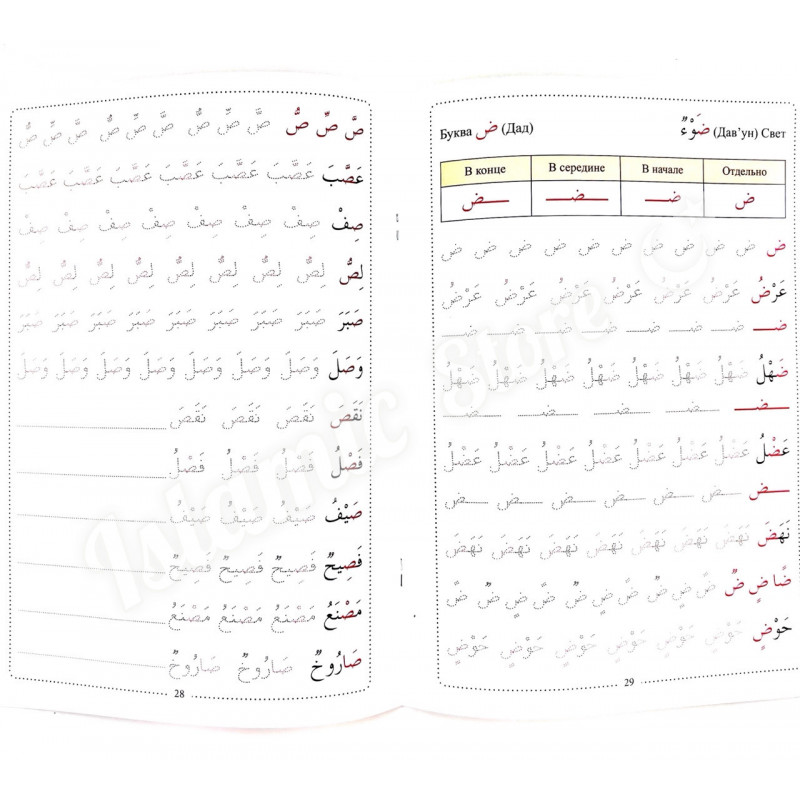 صَّ صِّ صُّ صَّ صِّ صُّ صَّ صِّ صُّ صَّ صِّ صُّ
عَصَّبَ عَصَّبَ عَصَّبَ عَصَّبَ عَصَّبَ عَصَّبَ عَصَّبَ
صِفْ صِفْ صِفْ صِفْ صِفْ صِفْ صِفْ
لِصُّ لِصُّ لِصُّ لِصُّ لِصُّ لِصُّ لِصُّ لِصُّ
صَبَرَ صَبَرَ صَبَرَ صَبَرَ صَبَرَ صَبَرَ صَبَرَ
وَصَلَ وَصَلَ وَصَلَ وَصَلَ وَصَلَ وَصَلَ وَصَلَ وَصَلَ
نَقَصَ نَقَصَ نَقَصَ نَقَصَ
فَصْلُ فَصْلُ فَصْلُ فَصْلُ
صَيْفُ صَيْفُ صَيْفُ صَيْفُ
فَصِيحٌ فَصِيحٌ فَصِيحٌ فَصِيحٌ
مَصْنَعُ مَصْنَعُ مَصْنَعُ مَصْنَعُ
صَارُوخٌ صَارُوخٌ صَارُوخٌ
28
Буква ض (Дад) ضَوْءٌ (Дав’ун) Свет
В конце В середине В начале Отдельно
ـض ـضـ ضـ ض
ض ض ض ض ض ض ض ض ض ض ض
عَرْضُ عَرْضُ عَرْضُ عَرْضُ عَرْضُ عَرْضُ عَرْضُ
ضـ ضـ ضـ ضـ ضـ ضـ
ضَهْلُ ضَهْلُ ضَهْلُ ضَهْلُ ضَهْلُ ضَهْلُ ضَهْلُ ضَهْلُ
ـضـ ـضـ ـضـ ـضـ ـضـ
عَضْلُ عَضْلُ عَضْلُ عَضْلُ عَضْلُ عَضْلُ عَضْلُ عَضْلُ
ـض ـض ـض ـض ـض ـض ـض
نَهَضَ نَهَضَ نَهَضَ نَهَضَ نَهَضَ نَهَضَ نَهَضَ نَهَضَ
ضًا ضٍ ضٌ ض ض ض ض ض ض ض ض ض
حَوْضٍ حَوْضٍ حَوْضٍ حَوْضٍ حَوْضٍ حَوْضٍ حَوْضٍ
29
Islamic Store